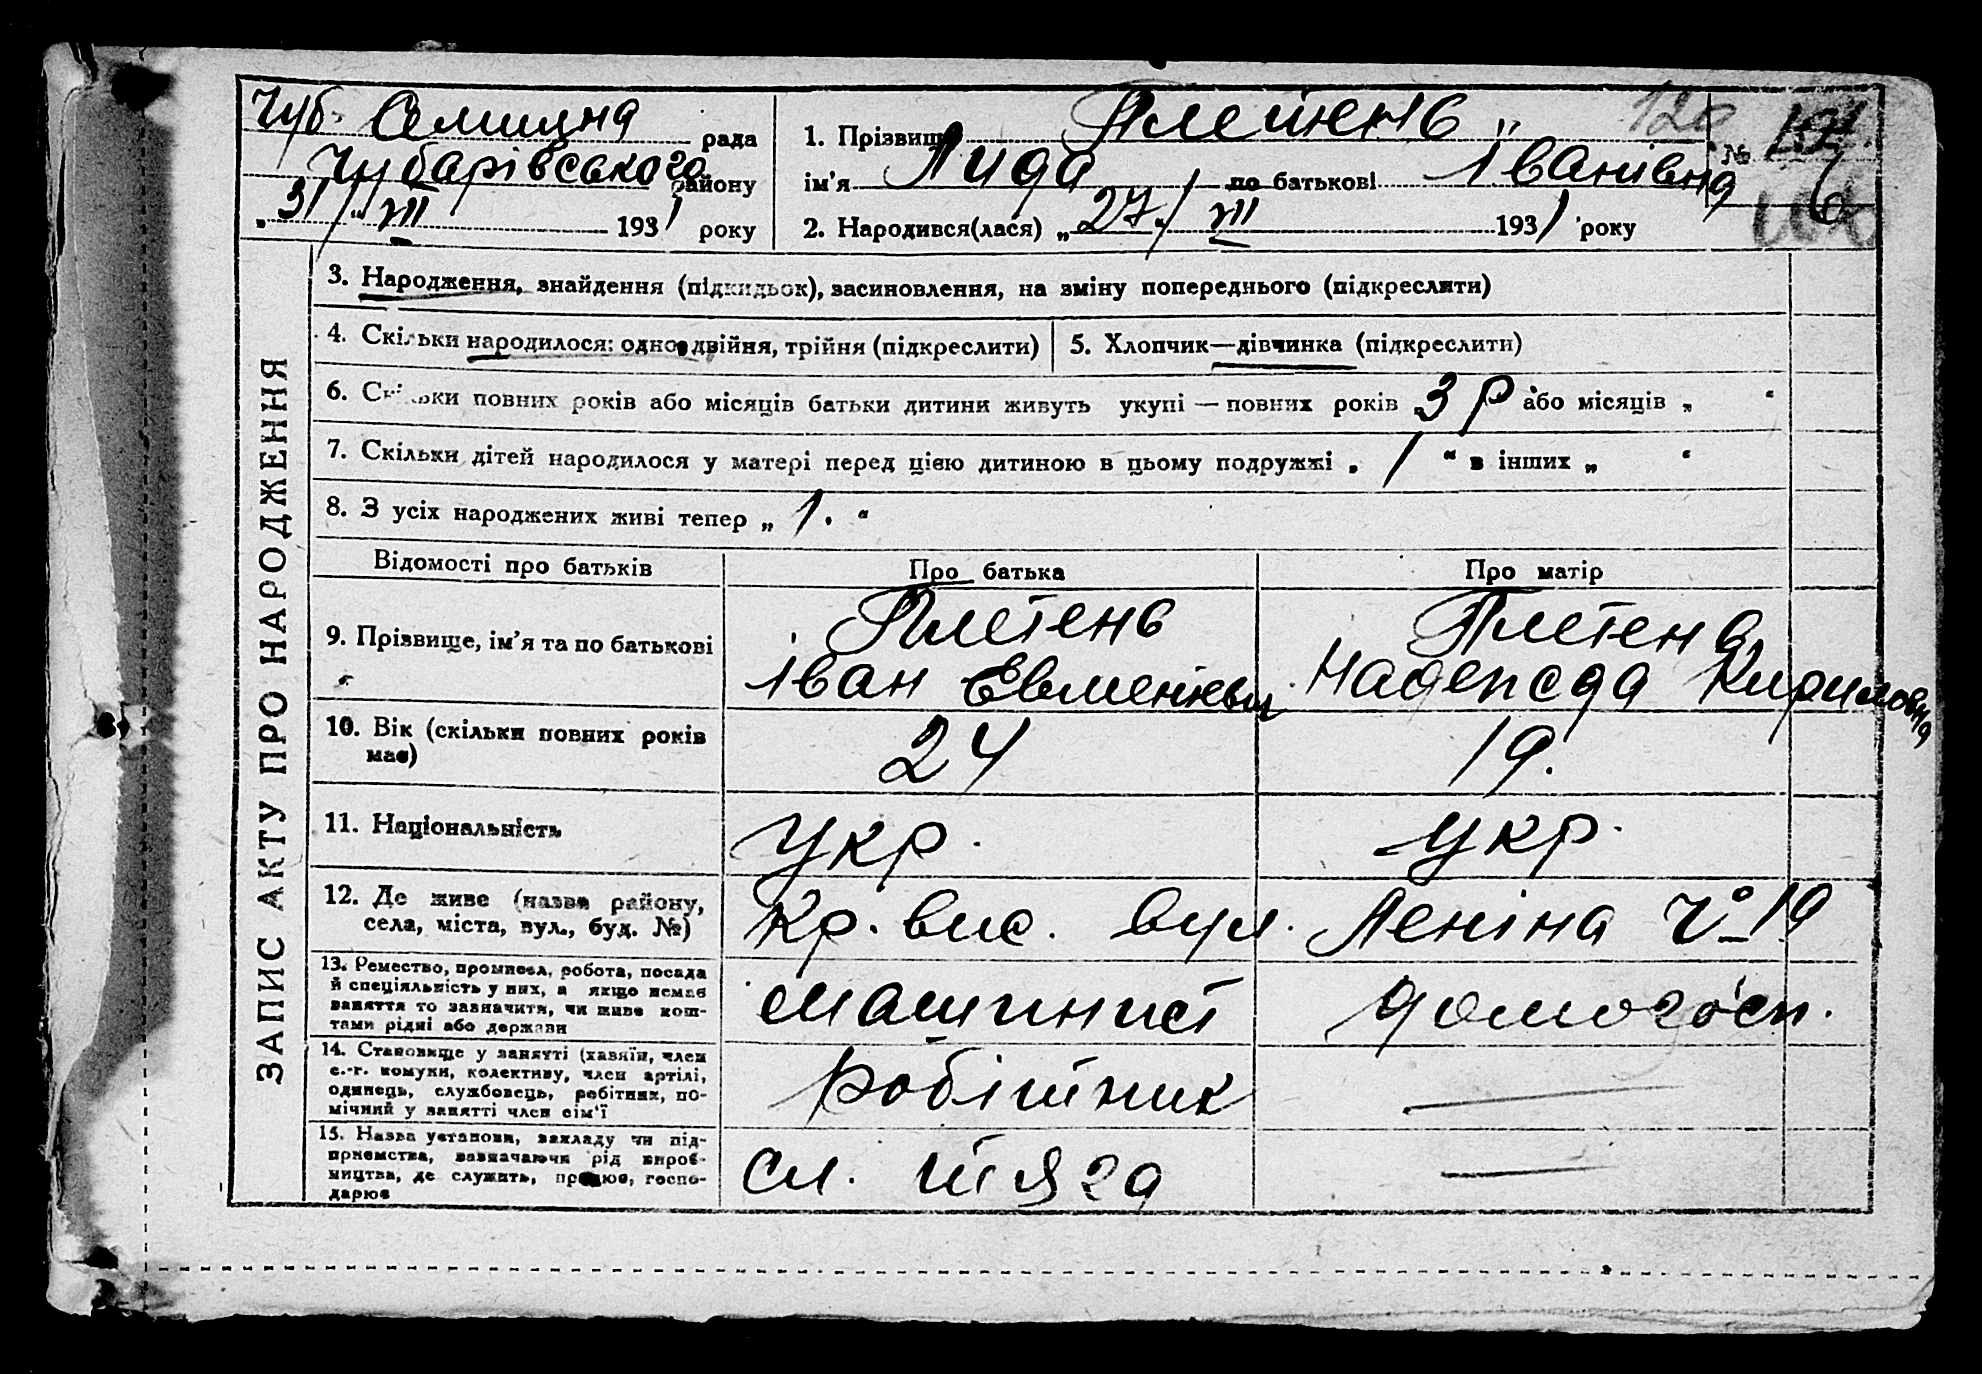 Чуб. Селищна рада
Чубарівського району
„31/" VII 1931 року
1. Прізвище Плетень
120
№
ім'я Лида по батькові Іванівна
2. Народився(лася) „27/" VII 1931 року
ЗАПИС АКТУ ПРО НАРОДЖЕННЯ
3. Народження, знайдення (підкидьок), засиновлення, на зміну попереднього (підкреслити)
4. Скільки народилося: одно, двійня, трійня (підкреслити)
5. Хлопчик—дівчинка (підкреслити)
6. Скільки повних років або місяців батьки дитини живуть укупі — повних років 3 р або місяців „ "
7. Скільки дітей народилося у матері перед цією дитиною в цьому подружжі „ 1 " в інших „ "
8. З усіх народжених живі тепер „ 1. "
Відомості про батьків
Про батька
Про матір
9. Прізвище, ім'я та по батькові
Плетень
Іван Евменієвич
Плетень
Надежда Кириловна
10. Вік (скільки повних років
має)
24
19.
11. Національність
Укр.
Укр.
12. Де живе (назва району,
села, міста, вул., буд. №)
Кр. вис. вул. Леніна № 19
13. Ремество, промисел, робота, посада
й спеціяльність у них, а якщо немає
заняття то зазначити, чи живе кош-
тами рідні або держави
машинист
домогосп.
14. Становище у занятті (хазяїн, член
с.-г. комуни, колективу, член артілі,
одинець, службовець, робітник, по-
мічний у занятті член сім'ї
робітник
15. Назва установи, закладу чи під-
приємства, зазначаючи рід вироб-
ництва, де служить, працює, госпо-
дарює
сл. тяга